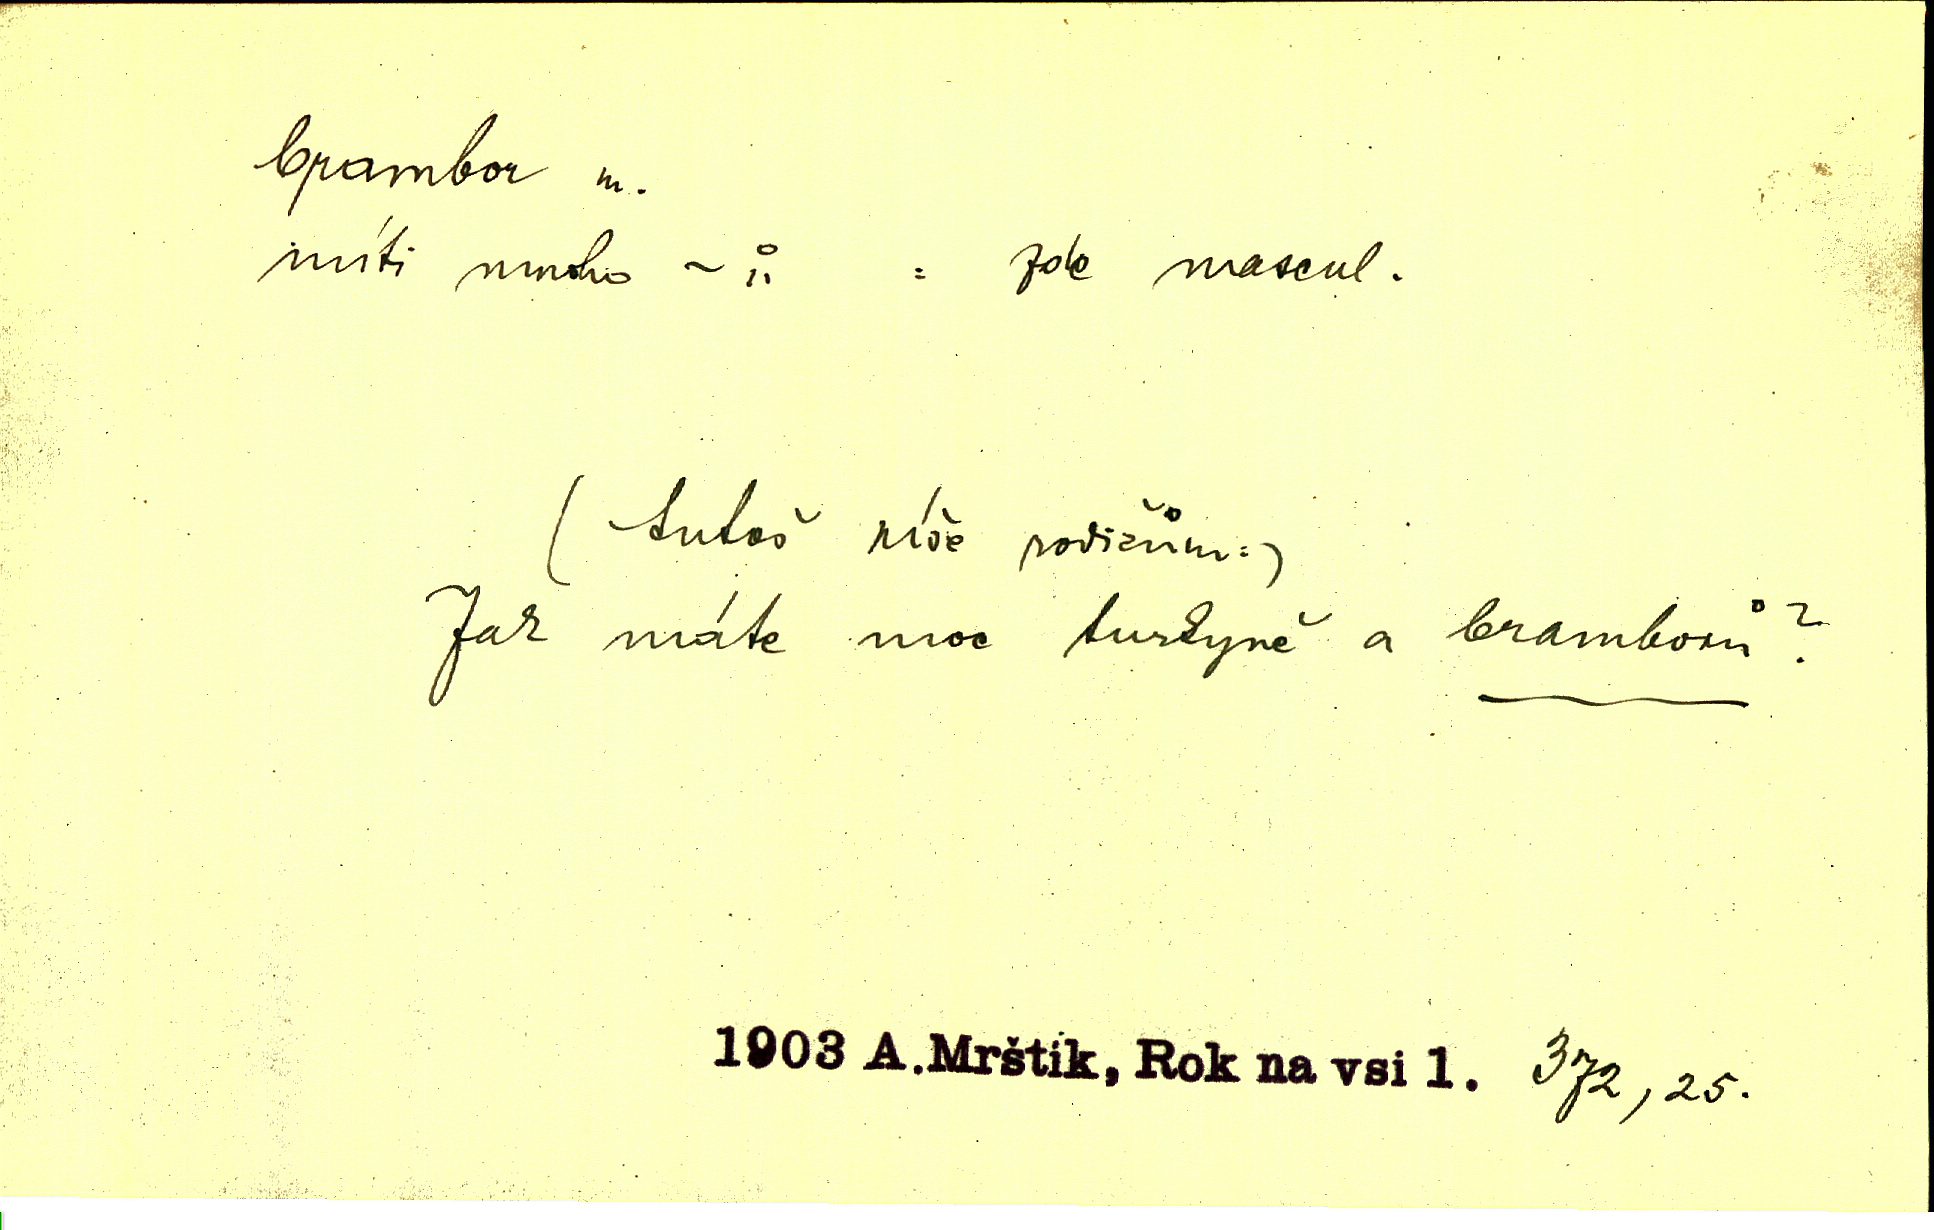 brambor m.
míti mnoho ~ů = zde mascul.
(Lutoš píše rodičům:)
Jak máte moc turkyně a bramborů?
1903 A.Mrštík, Rok na vsi 1. 372, 25.